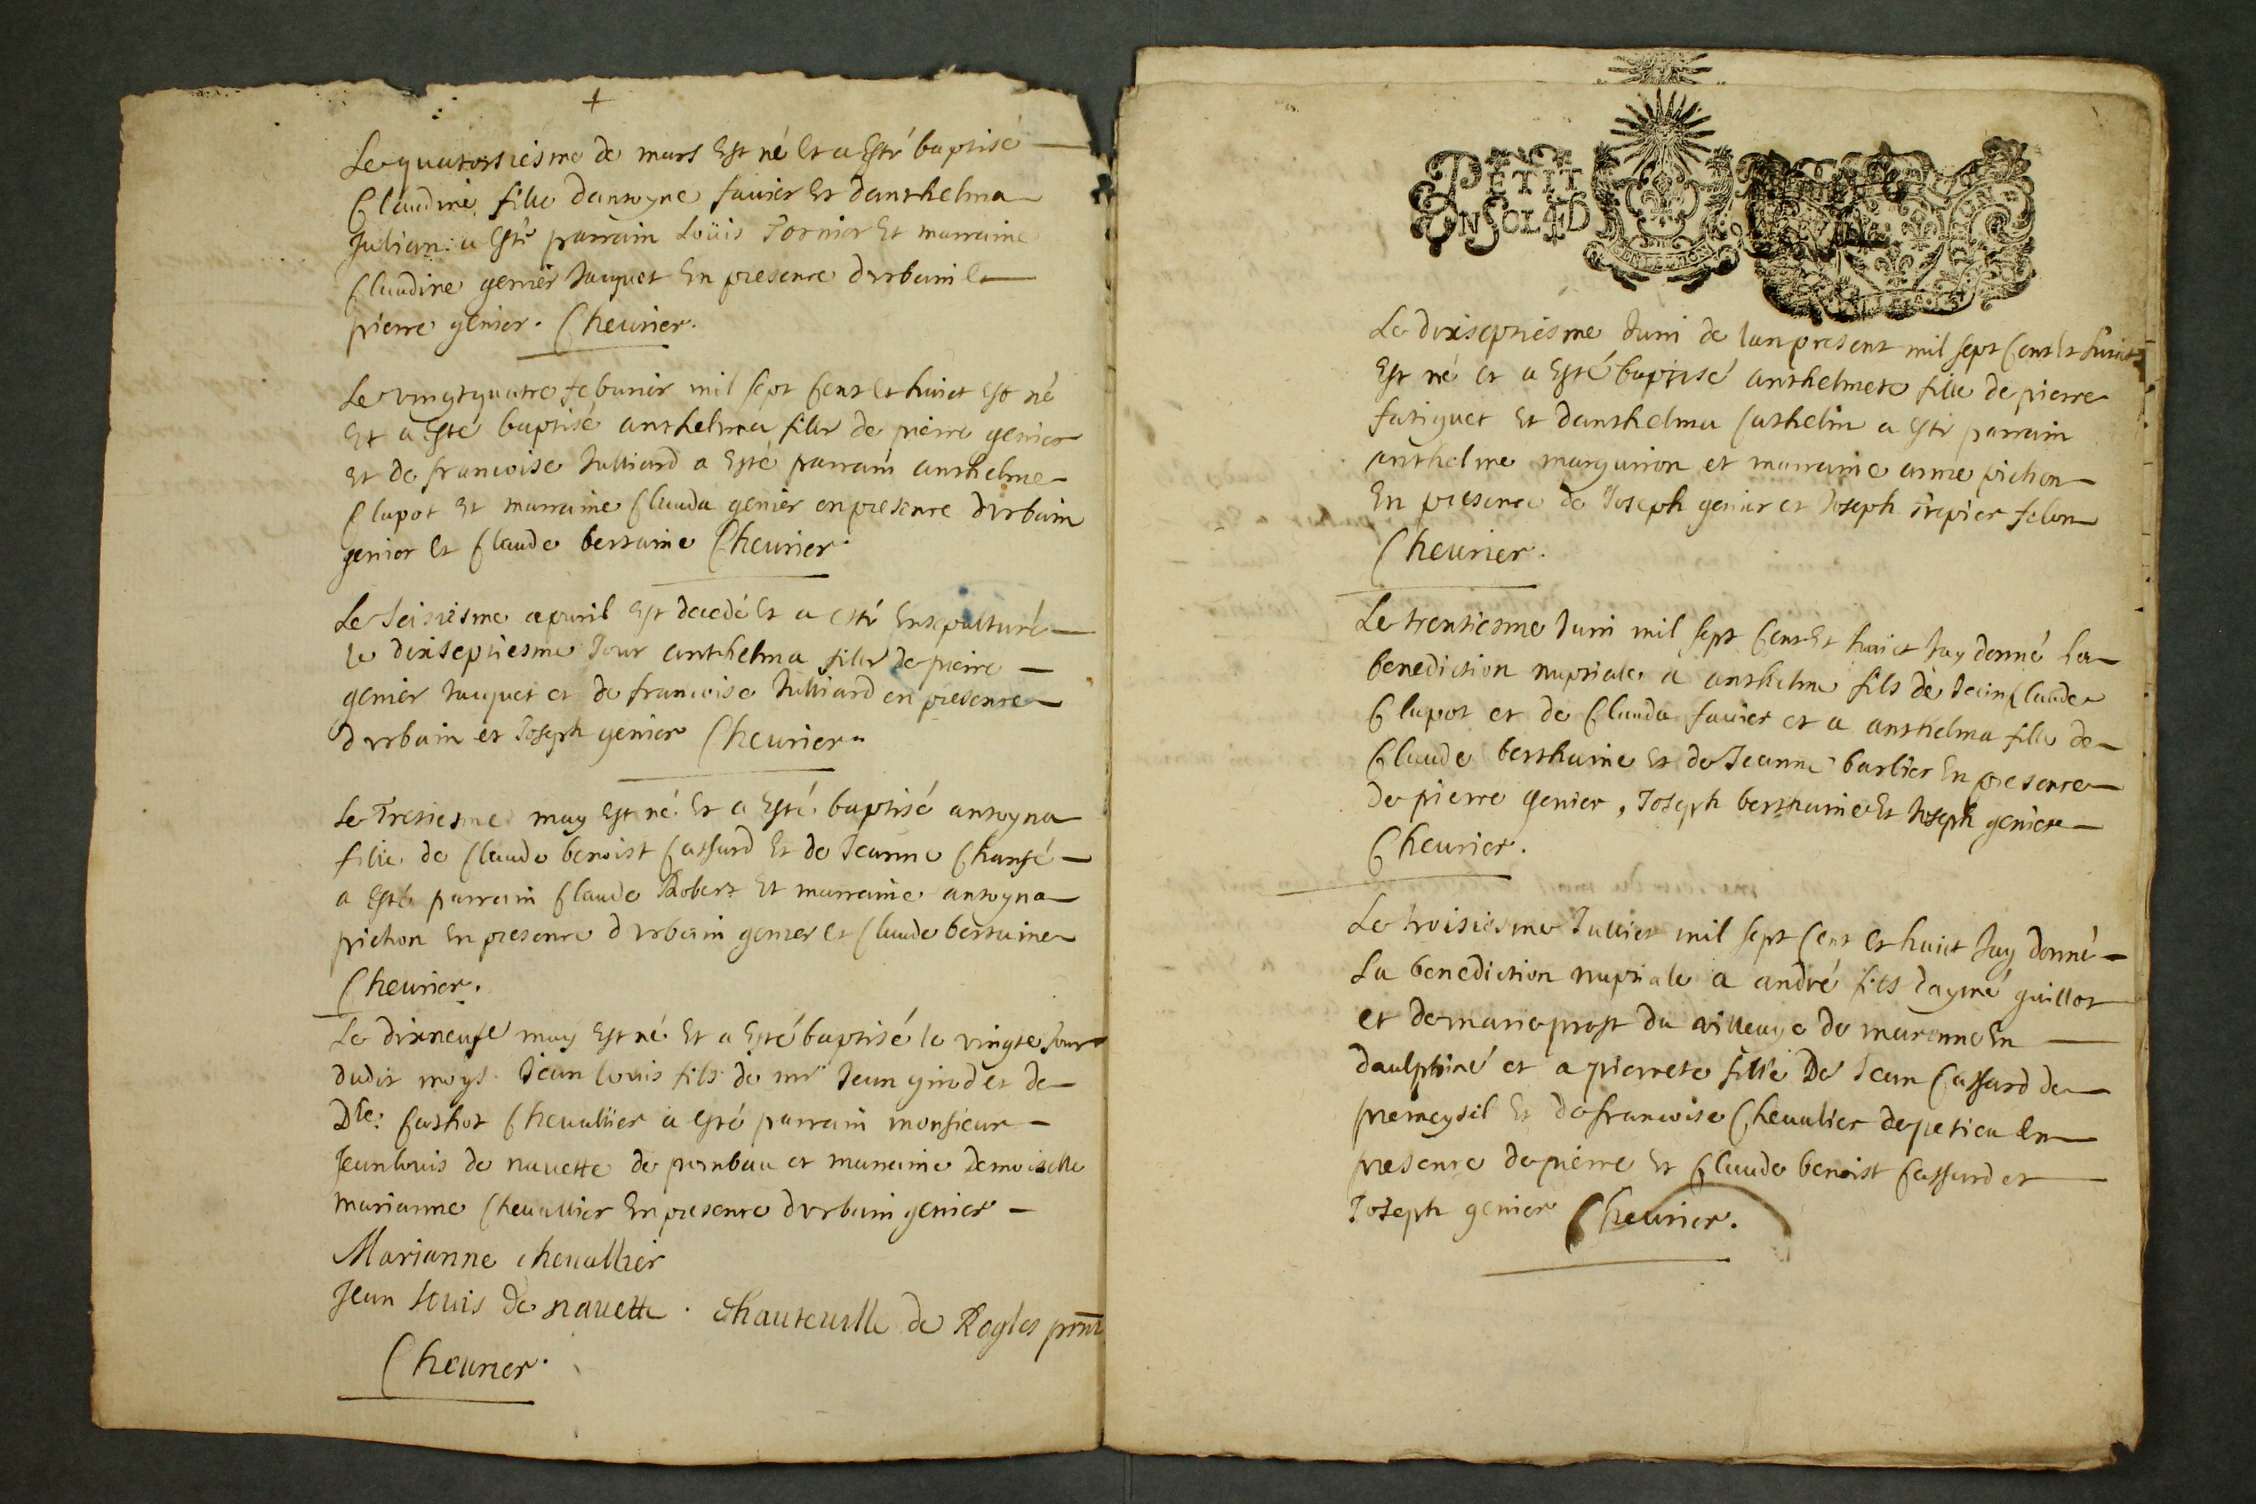 Le quatorsiesme de mars Est né Et a Esté baptisé
Claudine fille dantoyne fauier Et danthelma
Julian a Esté parrain Loüis Tornier Et marraine
Claudine genier Jaquet En presence durbain Et
pierre genier. Cheurier.
Le vingtquatre feburier mil sept Cent Et huict Est né
Et a Esté baptisé anthelma fille de pierre genier
Et de francoise Julliard a Esté parrain anthelme
Clapot Et marraine Clauda genier en presence durbain
genier Et Claude bertaine Cheurier.
Le Seisiesme apuril Est decedé Et a esté Ensepulturé
le dixseptiesme Jour anthelma fille de pierre
genier Jaquet et de francoise Julliard en presence
durbain et Joseph genier Cheurier
Le Tresiesme may Est né Et a Esté baptisé antoyna
fille de Claude benoist Cassard Et de Jeanne Chansé
a Esté parrain Claude Robert Et marraine antoyna
pichon En presence durbain genier Et Claude bertaine
Cheurier.
Le dixneufe may Est né Et a Esté baptisé le vingte Jour
dudit moys Jean louis fils de mr Jean girod et de
Dlle. Cathot Cheuallier a esté parrain monsieur
Jean louis de nauette de pombau et maraine demoiselle
marianne Cheuallier En presence durbain genier
Marianne cheuallier
Jean louis de nauette. dhauteuille de Rogles pnt
Cheurier.
PETIT
EN SOL LE D
Le dixseptiesme Juin de lan present mil sept Cent Et huict
Est né et a Esté baptisé anthelmete fille de pierre
fatiguet Et danthelma Cathelin a esté parrain
anthelme marguiron et marraine anne pichon
En presence de Joseph genier et Joseph Trepier felon
Cheurier.
Le trentiesme Juin mil sept Cent Et huict Jay donné la
benediction nuptiale a anthelme fils de Jean Claude
Clapot et de Clauda fauier et a anthelma fille de
Claude berthaine Et de Jeanne barlier En presence
de pierre genier, Joseph berthaine Et Joseph genier
Cheurier.
Le troisiesme Julliet mil sept Cent Et huict Jay donné
La benediction nuptiale a andré fils daymé guillot
et de marie prost du villeage de maranne En
daulphiné et a pierrete fille De Jean Cassard de
premeysel Et de francoise Cheualier de petieu En
presence de pierre Et Claude benoist Cassard et
Joseph genier Cheurier.